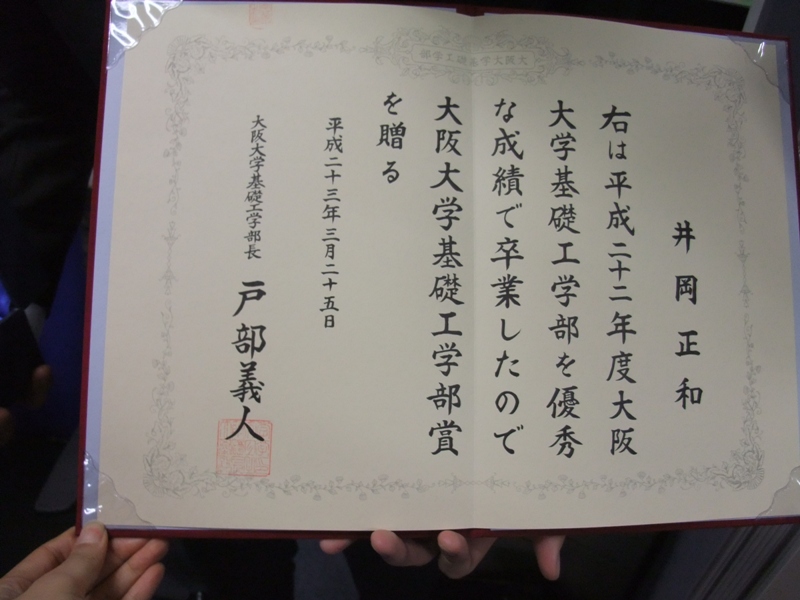 大阪大学基礎工学部
井岡正和
右は平成二十二年度大阪
大学基礎工学部を優秀
な成績で卒業したので
大阪大学基礎工学部賞
を贈る
平成二十三年三月二十五日
大阪大学基礎工学部長 戸部義人